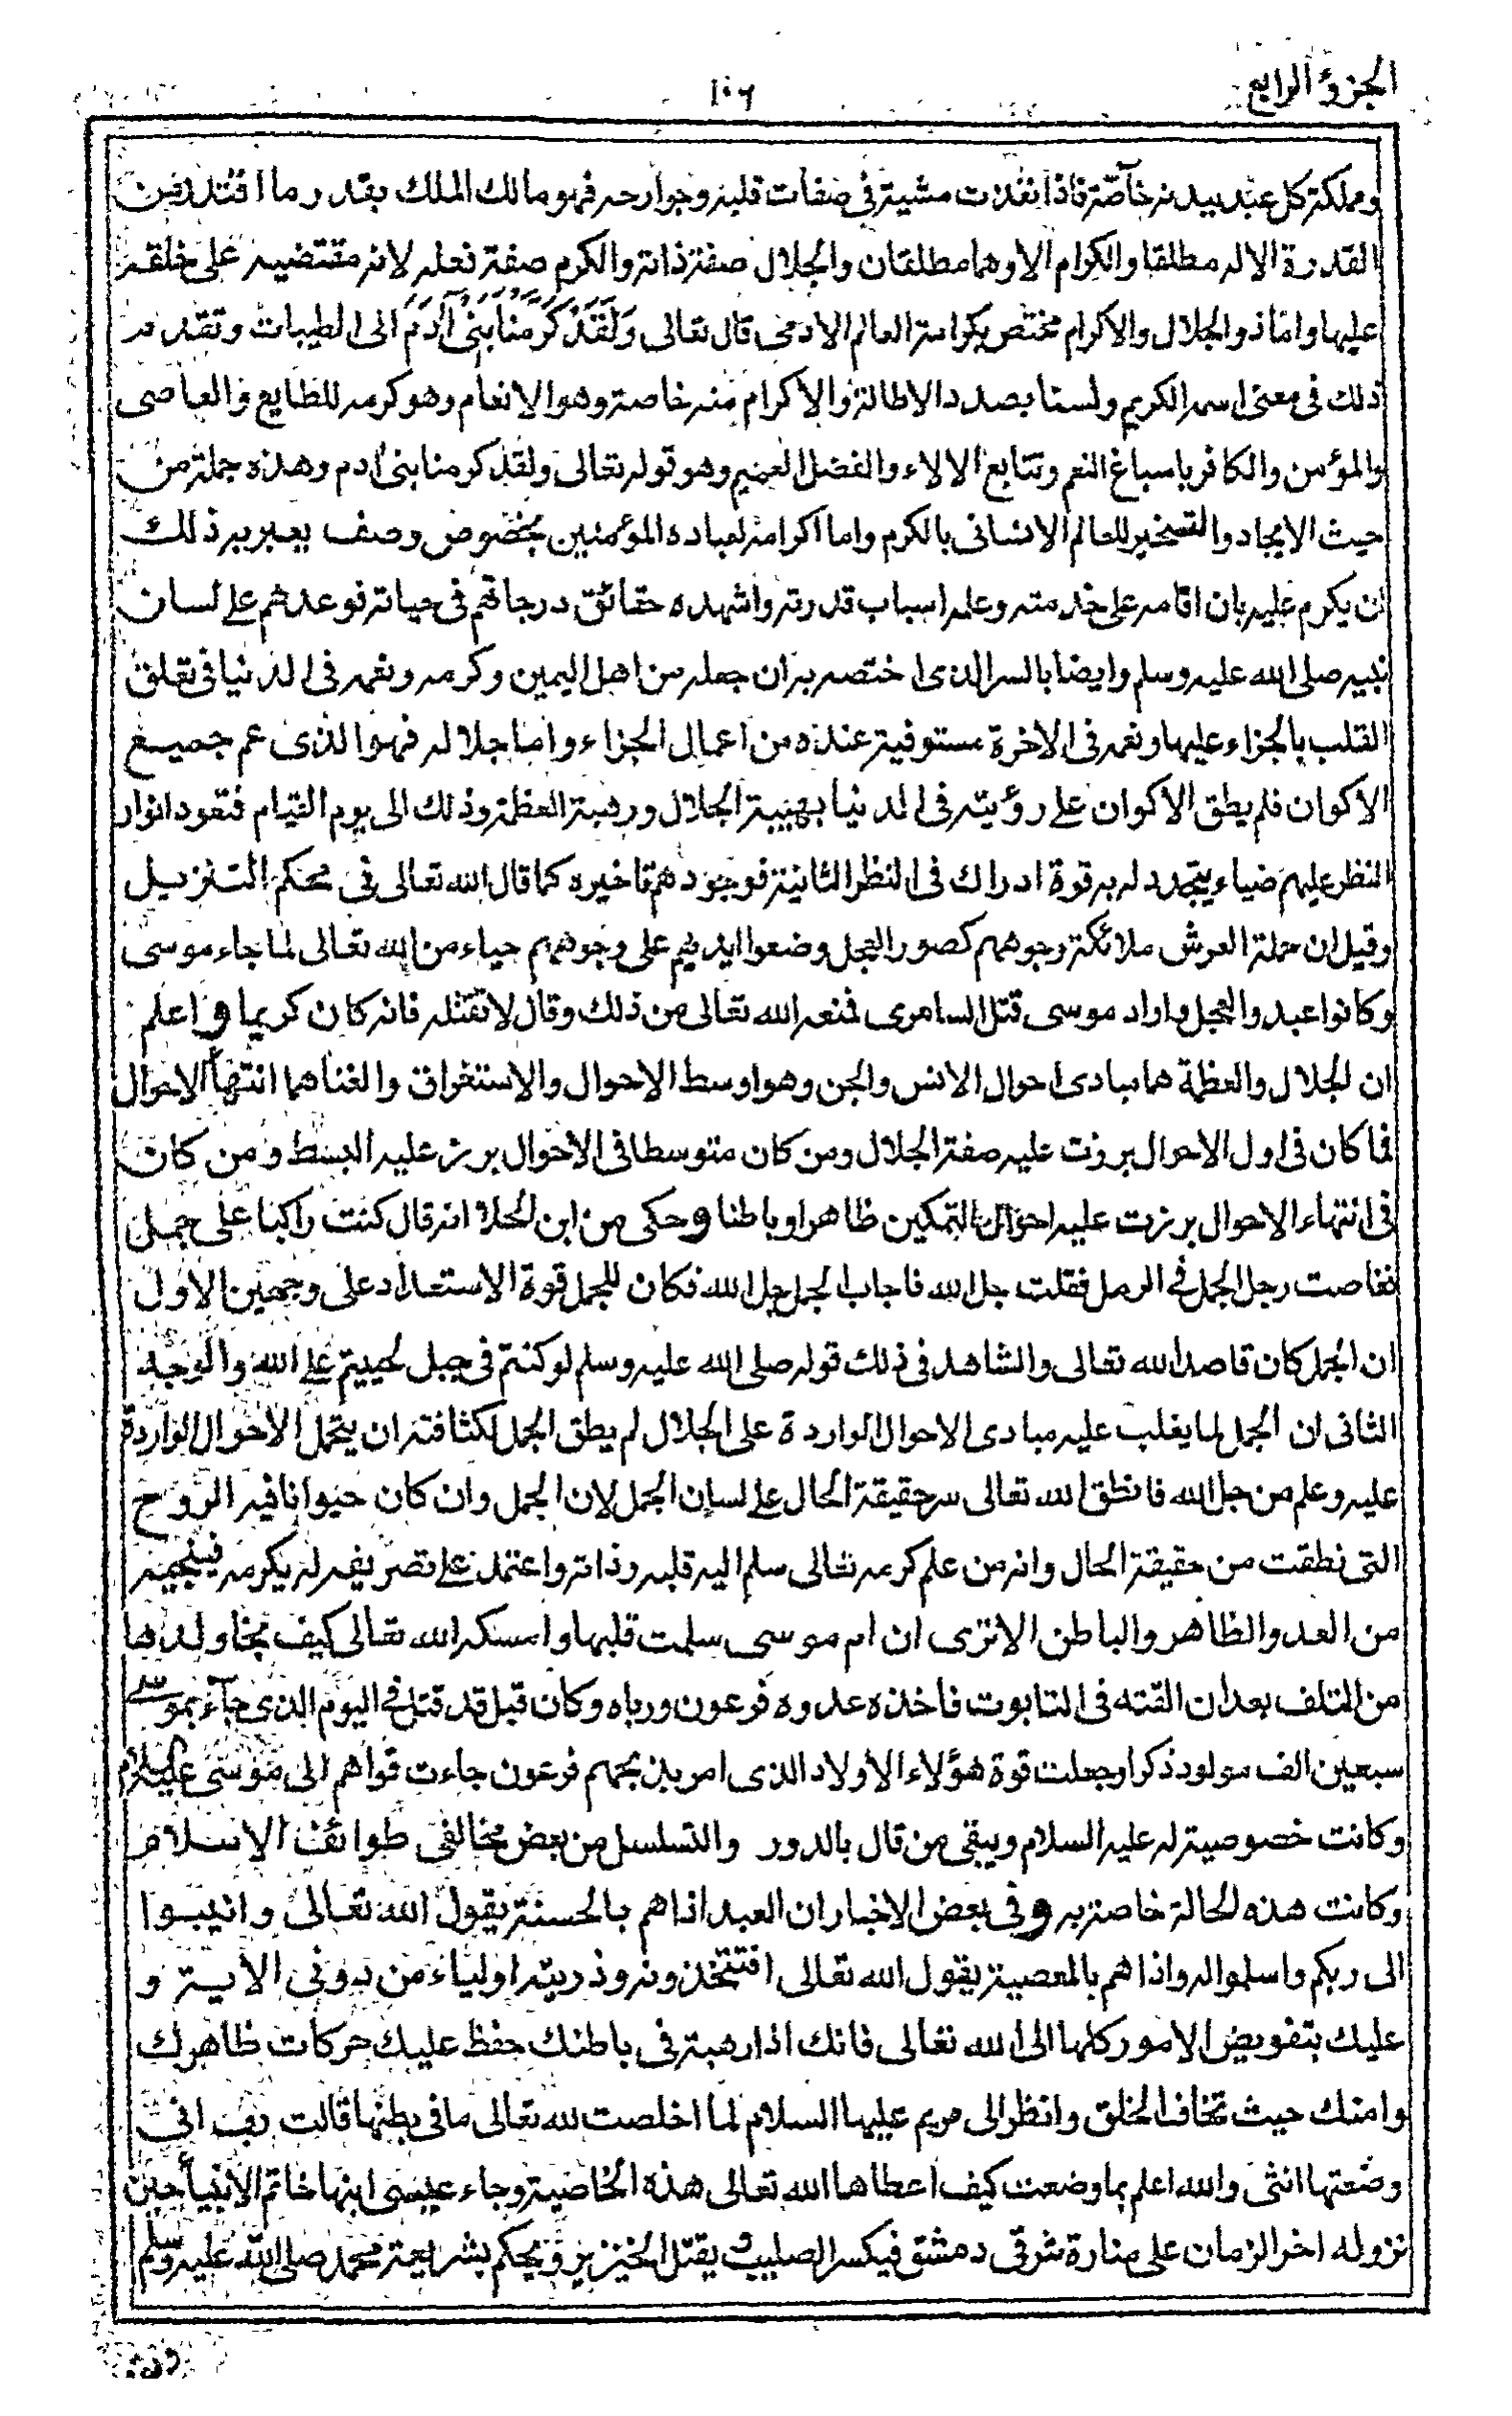 الجزؤ الرابع
١٠٦
ومملكة كل عبد بيدنه خآصّة فاذا نفذت مشيته فى صفات قلبه وجوارحه فهو مالك الملك بقدر ما اقتدر من
القدرة الاله مطلقا والكرام الاوهما مطلقان والجلال صفة ذاته والكرم صفة فعله لانه مقتضيه على خلقه
عليها واما ذو الجلال والاكرام مختص بكرامة العالم الادمى قال تعالى وَلَقَدْ كَرَّمْنَا بَنِىٓ اٰدَمَ الى الطيبات وتقدم
ذلك فى معنى اسمه الكريم ولسنا بصدد الاطالة والاكرام منه خاصة وهو الانعام وهو كرمه للطايع والعاصى
والمؤمن والكافر باسباغ النعم وتتابع الالاء والفضل العميم وهو قوله تعالى ولقد كرمنا بنى ادم وهذه جملة من
حيث الايجاد والتسخير للعالم الانسانى بالكرم واما اكرامه لعباده المؤمنين بخصوص وصف يعبر به ذلك
ان يكرم عليه بان اقامه على خدمته وعلمه اسباب قدرته واشهده حقائق درجاتهم فى حياته نوعدهم على لسان
نبيه صلى الله عليه وسلم وايضا بالسر الذى اختصه به ان جعله من اهل اليمين وكرمه ونعمه فى الدنيا فى تعلق
القلب بالجزاء عليها ونعمه فى الاخرة مستوفية عنده من اعمال الجزاء واما جلاله فهو الذى عم جميع
الاكوان فلم يطق الاكوان على رؤيته فى الدنيا بهيبة الجلال ورهبة العظمة وذلك الى يوم القيام فتعود انوار
النظر عليهم ضياء يتجدد له به قوة ادراك فى النظر الثانية فوجودهم تاخيره كما قال الله تعالى فى محكم التنزيل
وقيل ان حملة العرش ملائكة وجوههم كصور العجل وضعوا ايديهم على وجوههم حياء من الله تعالى لما جاء موسى
وكانوا عبدوا العجل واراد موسى قتل السامرى فمنعه الله تعالى من ذلك وقال لا تقتله فانه كان كريما و اعلم
ان الجلال والعظمة هما مبادى احوال الانس والجن وهو اوسط الاحوال والاستغراق والغنا هما انتهآ الاحوال
فما كان فى اول الاحوال برزت عليه صفة الجلال ومن كان متوسطا فى الاحوال برز عليه البسط ومن كان
فى انتهاء الاحوال برزت عليه احوال التمكين ظاهرا وباطنا و حكى من ابن الجلا انه قال كنت راكبا على جمل
فغاصت رجل الجمل فى الرمل فقلت جل الله فاجاب الجمل جل الله فكان للجمل قوة الاستعداد على وجهين الاول
ان الجمل كان قاصد الله تعالى والشاهد فى ذلك قوله صلى الله عليه وسلم لو كنتم فى جبل لحييتم على الله والوجه
الثانى ان الجمل لما يغلب عليه مبادى الاحوال الواردة على الجلال لم يطق الجمل لكثافته ان يتحمل الاحوال الواردة
عليه وعلم من جل الله فانطق الله تعالى سر حقيقة الحال على لسان الجمل لان الجمل وان كان حيوانا فيه الروح
التى نطقت من حقيقة الحال وانه من علم كرمه تعالى سلم اليه قلبه وذاته واعتمد على تصريفه له يكرمه فينجيه
من العدو الظاهر والباطن الا ترى ان ام موسى سلمت قلبها وامسكه الله تعالى كيف نجا ولدها
من التلف بعد ان القته فى التابوت فاخذه عدوه فرعون ورباه وكان قبل قد قتل فى اليوم الذى جآء بموسى
سبعين الف مولود ذكرا وجعلت قوة هؤلاء الاولاد الذى امر بذبحهم فرعون جاءت قواهم الى موسى عليه السلام
وكانت خصوصية له عليه السلام ويبقى من قال بالدور والتسلسل من بعض مخالفى طوائف الاسلام
وكانت هذه الحالة خاصة به و فى بعض الاخبار ان العبد اذا هم بالحسنة يقول الله تعالى وانيبوا
الى ربكم واسلموا له واذا هم بالمعصية يقول الله تعالى افتتخذونه وذريته اولياء من دونى الاية و
عليك بتفويض الامور كلها الى الله تعالى فانك اذا رهبته فى باطنك حفظ عليك حركات ظاهرك
وامنك حيث تخاف الخلق وانظر الى مريم عليها السلام لما اخلصت لله تعالى ما فى بطنها قالت رب انى
وضعتها انثى والله اعلم بما وضعت كيف اعطاها الله تعالى هذه الخاصية وجاء عيسى ابنها خاتم الانبيآ حين
نزوله اخر الزمان على منارة شرقى دمشق فيكسر الصليب و يقتل الخنزير و يحكم بشريعة محمد صلى الله عليه وسلم